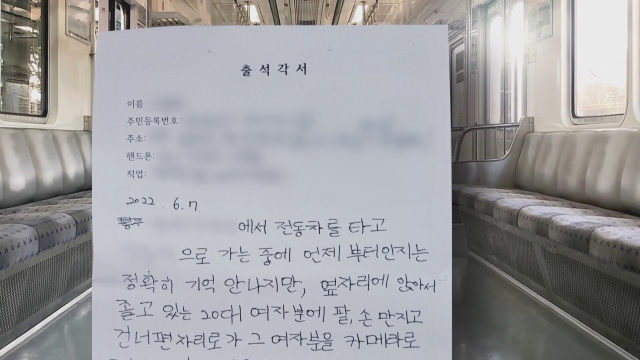 출석각서
이름
주민등록번호:
주소:
핸드폰:
직업:
2022. 6. 7.
에서 전동차를 타고
으로 가는 중에 언제 부터인지는
정확히 기억 안나지만, 옆자리에 앉아서
졸고 있는 20대 여자분에 팔, 손 만지고
건너편 자리로가 그 여자분을 카메라로